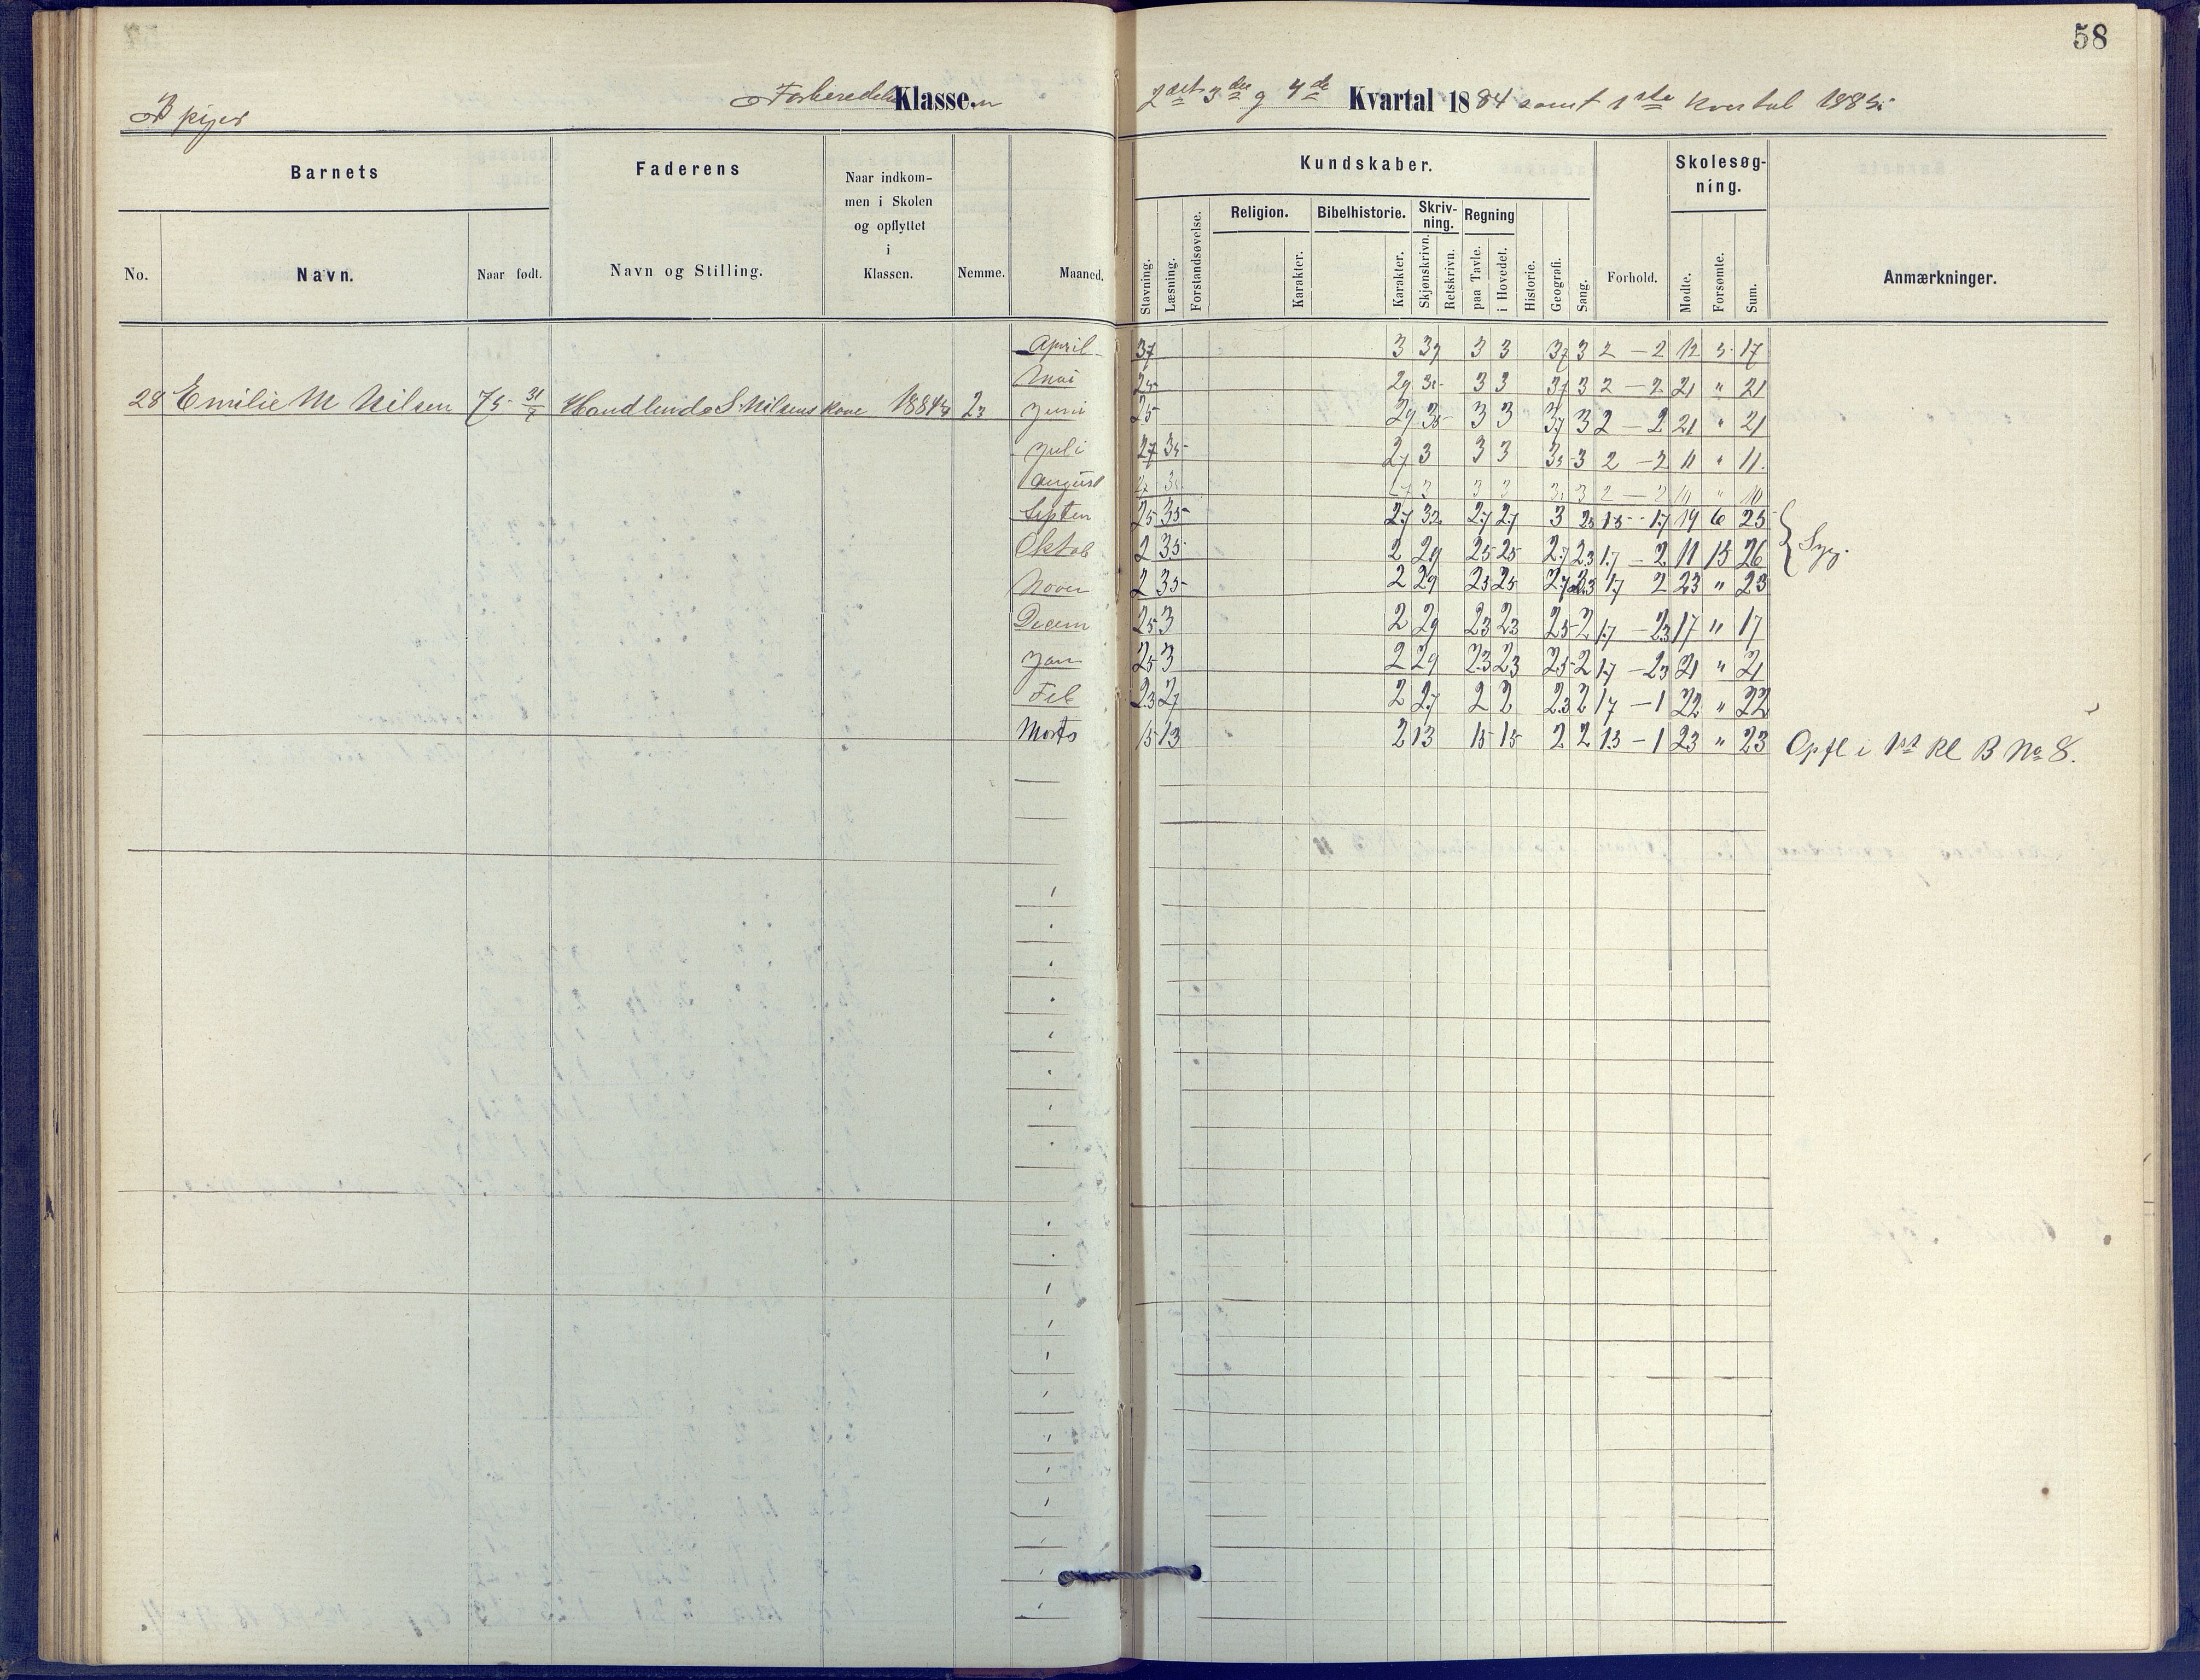 58
B piger
Klassen
2det 3die og 4de Kvartal 1884 samt 1ste Kvartal 1885.
Barnets
Faderens
Naar indkom-
men i Skolen
og opflyttet
i
Klassen.
No.
Navn.
Naar født.
Navn og Stilling.
Nemme.
Maaned.
Kundskaber.
Skolesøg-
ning.
Religion.
Bibelhistorie.
Skriv-
ning.
Regning
Stavning.
Læsning.
Forstandsøvelse.
Karakter.
Karakter.
Skjønskrivn.
Retskrivn.
paa Tavle.
i Hovedet.
Historie.
Geografi.
Sang.
Forhold.
Mødte.
Forsømte.
Sum.
Anmærkninger.
April 37 3 3 3 3 2 – 2 12 5 17
Mai 3 3 3 2 – 2 21 " 21
28 Emilie M Nilsen 75 31/7 S. Nilsens Kone 1884 23
Juni 25 29 3 3 3 2 – 2 21 " 21
Juli 27 35 27 3 3 3 3 2 – 2 11 " 11.
August 3 3 3 3 2 – 2 10 " 10
Septem 25 35 27 32 27 27 3 25 15 – 17 19 6 25
Oktob 2 35 2 29 25 25 27 23 17 – 2 11 15 26 Syg.
Novem 2 35 2 29 25 25 27 23 17 2 23 " 23
Decem 25 3 2 29 23 23 25 2 17 – 23 17 " 17
Jan 25 3 2 29 23 23 25 2 17 – 23 21 " 21
Feb 23 27 2 27 2 2 23 2 17 – 1 22 " 22
Marts 15 13 2 13 15 15 2 2 13 – 1 23 " 23 Opfl i 1st Kl B No 8.